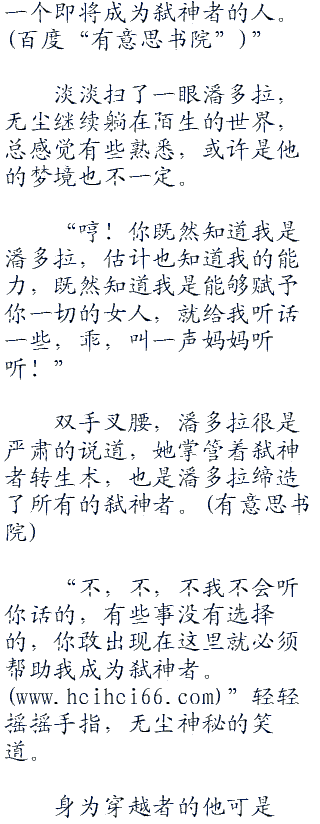 一个即将成为弑神者的人。
(百度“有意思书院”)”
淡淡扫了一眼潘多拉，
无尘继续躺在陌生的世界，
总感觉有些熟悉，或许是他
的梦境也不一定。
“哼！你既然知道我是
潘多拉，估计也知道我的能
力，既然知道我是能够赋予
你一切的女人，就给我听话
一些，乖，叫一声妈妈听
听！”
双手叉腰，潘多拉很是
严肃的说道，她掌管着弑神
者转生术，也是潘多拉缔造
了所有的弑神者。(有意思书
院)
“不，不，不我不会听
你话的，有些事没有选择
的，你敢出现在这里就必须
帮助我成为弑神者。
(www.hcihci66.com)”轻轻
摇摇手指，无尘神秘的笑
道。
身为穿越者的他可是